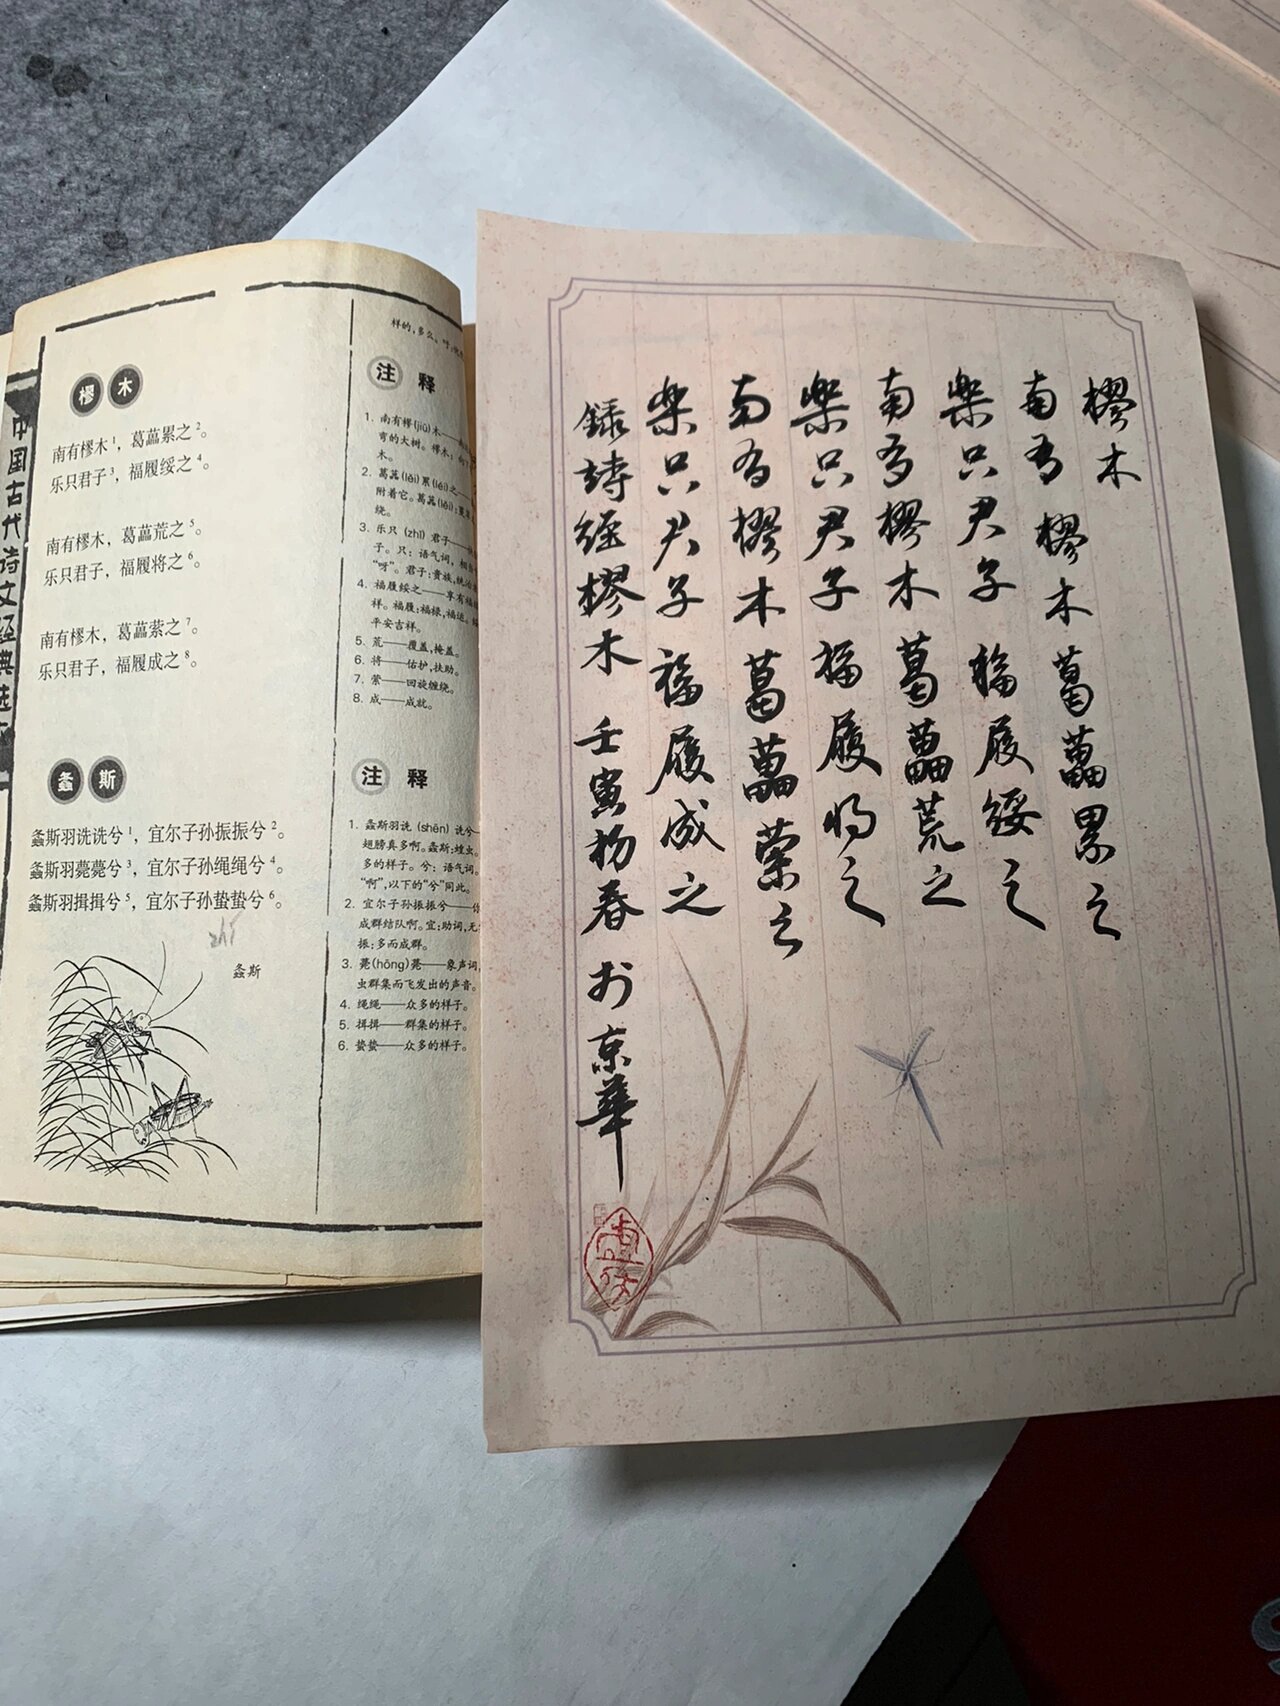 中国古代诗文经典选
樛木
南有樛木1，葛藟累之2。
乐只君子3，福履绥之4。
南有樛木，葛藟荒之5。
乐只君子，福履将之6。
南有樛木，葛藟萦之7。
乐只君子，福履成之8。
螽斯
螽斯羽诜诜兮1，宜尔子孙振振兮2。
螽斯羽薨薨兮3，宜尔子孙绳绳兮4。
螽斯羽揖揖兮5，宜尔子孙蛰蛰兮6。
zhí
螽斯
样的，多么。吁：
注释
1. 南有樛(jiū)木——
弯的大树。樛木：
木。
2. 葛藟(lěi)累(léi)之——
附着它。葛藟(lěi)：
绕。
3. 乐只(zhǐ)君子——
子。只：语气词，相
“呀”。君子：贵族，统治
4. 福履绥之——享有福
祥。福履：福禄，福运。
平安吉祥。
5. 荒——覆盖，掩盖。
6. 将——佑护，扶助。
7. 萦——回旋缠绕。
8. 成——成就。
注释
1. 螽斯羽诜(shēn)诜兮——
翅膀真多啊。螽斯：蝗虫。
多的样子。兮：语气词。
“啊”，以下的“兮”同此。
2. 宜尔子孙振振兮——你
成群结队啊。宜：助词，无
振：多而成群。
3. 薨(hōng)薨——象声词，
虫群集而飞发出的声音。
4. 绳绳——众多的样子。
5. 揖揖——群集的样子。
6. 蛰蛰——众多的样子。
樛木
南有樛木葛藟累之
樂只君子福履绥之
南有樛木葛藟荒之
樂只君子福履将之
南有樛木葛藟萦之
樂只君子福履成之
録詩經樛木壬寅杨春於京華